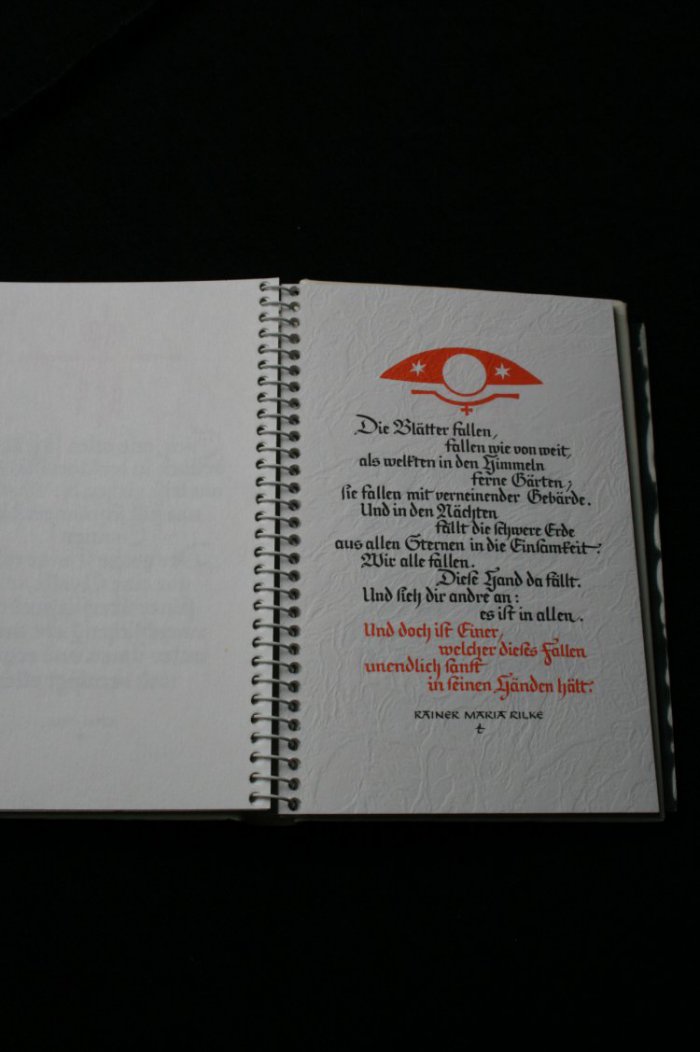 Die Blätter fallen,
fallen wie von weit,
als welkten in den Himmeln
ferne Gärten;
sie fallen mit verneinender Gebärde.
Und in den Nächten
fällt die schwere Erde
aus allen Sternen in die Einsamkeit.
Wir alle fallen.
Diese Hand da fällt.
Und sieh dir andre an:
es ist in allen.
Und doch ist Einer,
welcher dieses Fallen
unendlich sanft
in seinen Händen hält.
RAINER MARIA RILKE